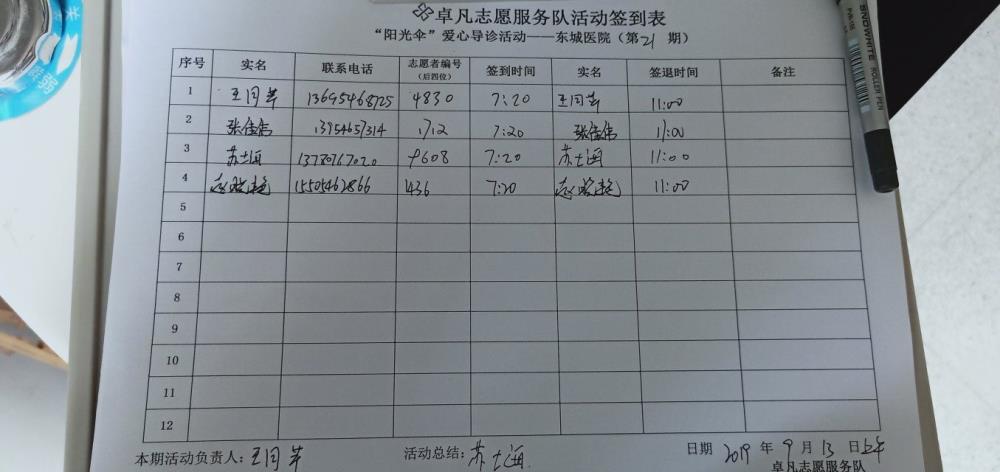 卓凡志愿服务队活动签到表
“阳光伞”爱心导诊活动——东城医院（第21期）
序号 实名 联系电话 志愿者编号（后四位） 签到时间 实名 签退时间 备注
1 王同 13695468725 4830 7:20 王同 11:00
2 张佳伟 13954657314 1712 7:20 张佳伟 11:00
3 苏士海 13780767020 9608 7:20 苏士海 11:00
4 15505462866 436 7:20 11:00
5
6
7
8
9
10
11
12
本期活动负责人：王同 活动总结：苏士海 日期 2019 年 9 月 13 日上午
卓凡志愿服务队
SNOWWHITE ROLLER PEN